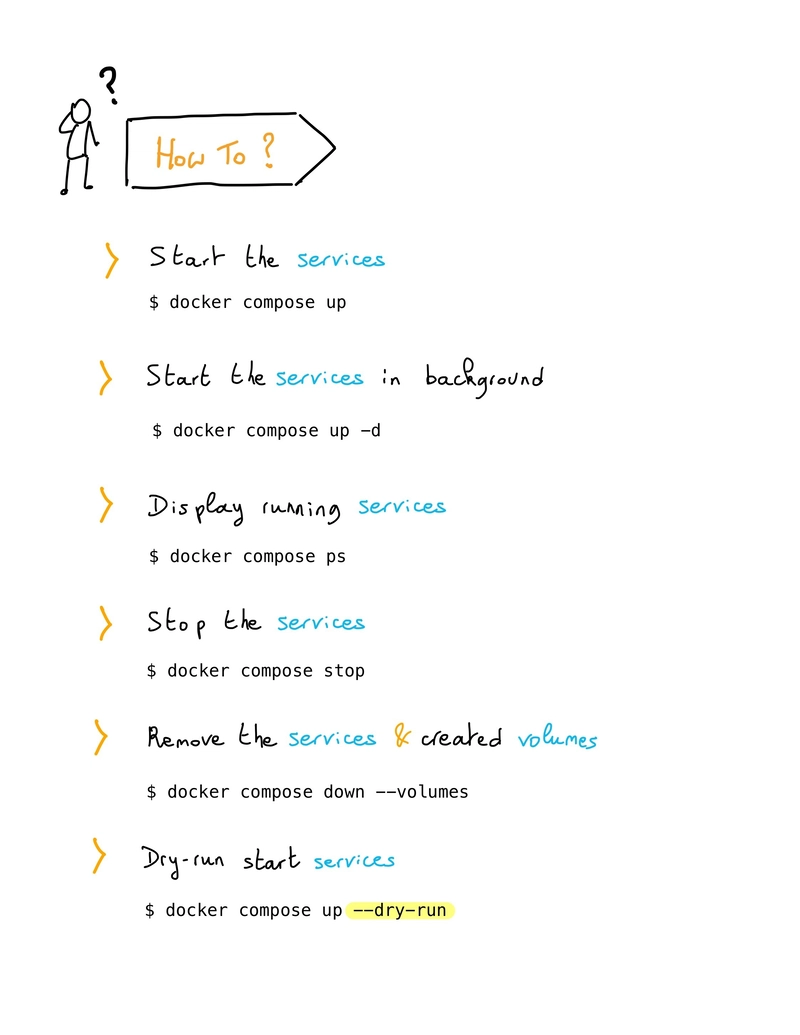 ?
How To ?
> Start the services
$ docker compose up
> Start the services in background
$ docker compose up -d
> Display running services
$ docker compose ps
> Stop the services
$ docker compose stop
> Remove the services & created volumes
$ docker compose down --volumes
> Dry-run start services
$ docker compose up --dry-run